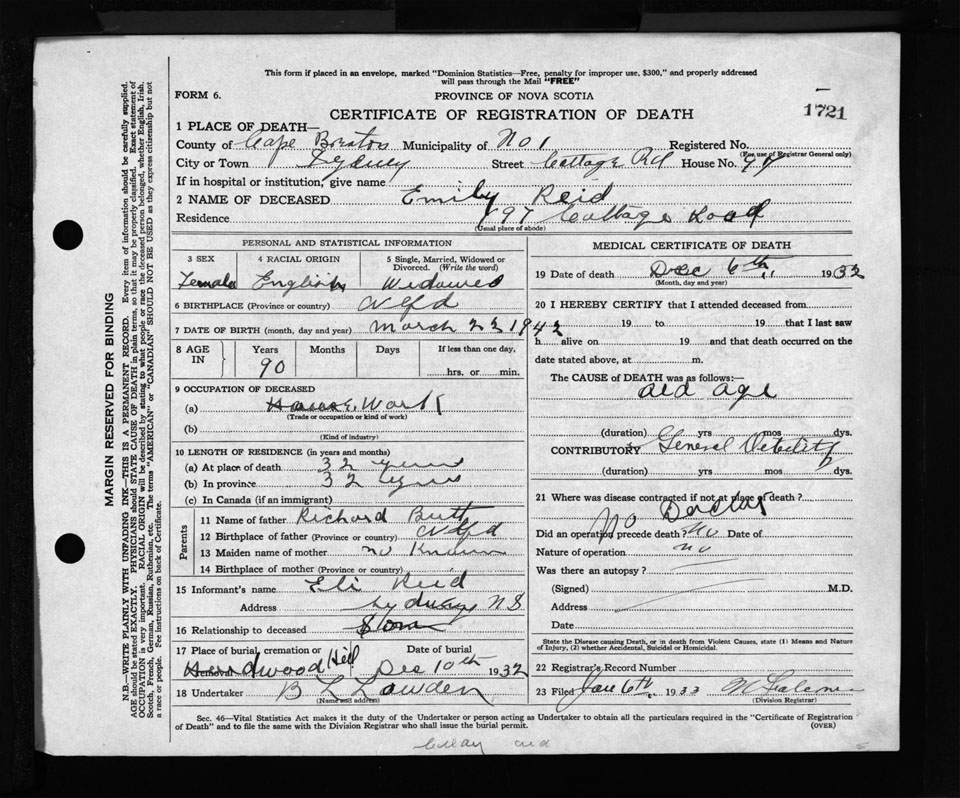 This form if placed in an envelope, marked "Dominion Statistics—Free, penalty for improper use, $300," and properly addressed
will pass through the Mail "FREE"
FORM 6.
PROVINCE OF NOVA SCOTIA
1721
CERTIFICATE OF REGISTRATION OF DEATH
1 PLACE OF DEATH—
County of Cape Breton Municipality of No 1 Registered No.
(For use of Registrar General only)
City or Town Sydney Street Cottage Rd House No.
If in hospital or institution, give name
2 NAME OF DECEASED Emily Reid
Residence 197 Cottage Road
(Usual place of abode)
PERSONAL AND STATISTICAL INFORMATION
3 SEX 4 RACIAL ORIGIN 5 Single, Married, Widowed or Divorced. (Write the word)
Female English Widowed
6 BIRTHPLACE (Province or country) Nfd
7 DATE OF BIRTH (month, day and year) March 22 1942
8 AGE IN Years Months Days If less than one day,
90 hrs. or min.
9 OCCUPATION OF DECEASED
(a) House Work
(Trade or occupation or kind of work)
(b)
(Kind of industry)
10 LENGTH OF RESIDENCE (in years and months)
(a) At place of death 32 years
(b) In province 32 years
(c) In Canada (if an immigrant)
Parents
11 Name of father Richard Butt
12 Birthplace of father (Province or country) Nfd
13 Maiden name of mother no Known
14 Birthplace of mother (Province or country)
15 Informant's name Eli Reid
Address Sydney NS
16 Relationship to deceased
17 Place of burial, cremation or removal Date of burial
Hardwood Hill Dec 10th 1932
18 Undertaker B L Lowden
(Name and address)
MEDICAL CERTIFICATE OF DEATH
19 Date of death Dec 6th, 1932
(Month, day and year)
20 I HEREBY CERTIFY that I attended deceased from
19 to 19 that I last saw
h alive on 19 and that death occurred on the
date stated above, at m.
The CAUSE OF DEATH was as follows:
old age
(duration) yrs mos dys.
CONTRIBUTORY General Debility
(duration) yrs mos dys.
21 Where was disease contracted if not at place of death?
No Doctor
Did an operation precede death? no Date of
Nature of operation no
Was there an autopsy?
(Signed) M.D.
Address
Date
State the Disease causing Death, or in death from Violent Causes, state (1) Means and Nature
of Injury, (2) whether Accidental, Suicidal or Homicidal.
22 Registrar's Record Number
23 Filed Jan 6th 1933
(Division Registrar)
Sec. 46—Vital Statistics Act makes it the duty of the Undertaker or person acting as Undertaker to obtain all the particulars required in the "Certificate of Registration
of Death" and to file the same with the Division Registrar who shall issue the burial permit. (OVER)
MARGIN RESERVED FOR BINDING
N.B.—WRITE PLAINLY WITH UNFADING INK—THIS IS A PERMANENT RECORD. Every item of information should be carefully supplied.
AGE should be stated EXACTLY. PHYSICIANS should STATE CAUSE OF DEATH in plain terms, so that it may be properly classified. Exact statement of
OCCUPATION is very important. RACIAL ORIGIN will be described by stating to what people or race the deceased person belonged, whether English, Irish,
Scotch, French, German, Russian, Ruthenian, etc. The terms "AMERICAN" or "CANADIAN" SHOULD NOT BE USED as they express citizenship but not
a race or people. Fee instructions on back of Certificate.